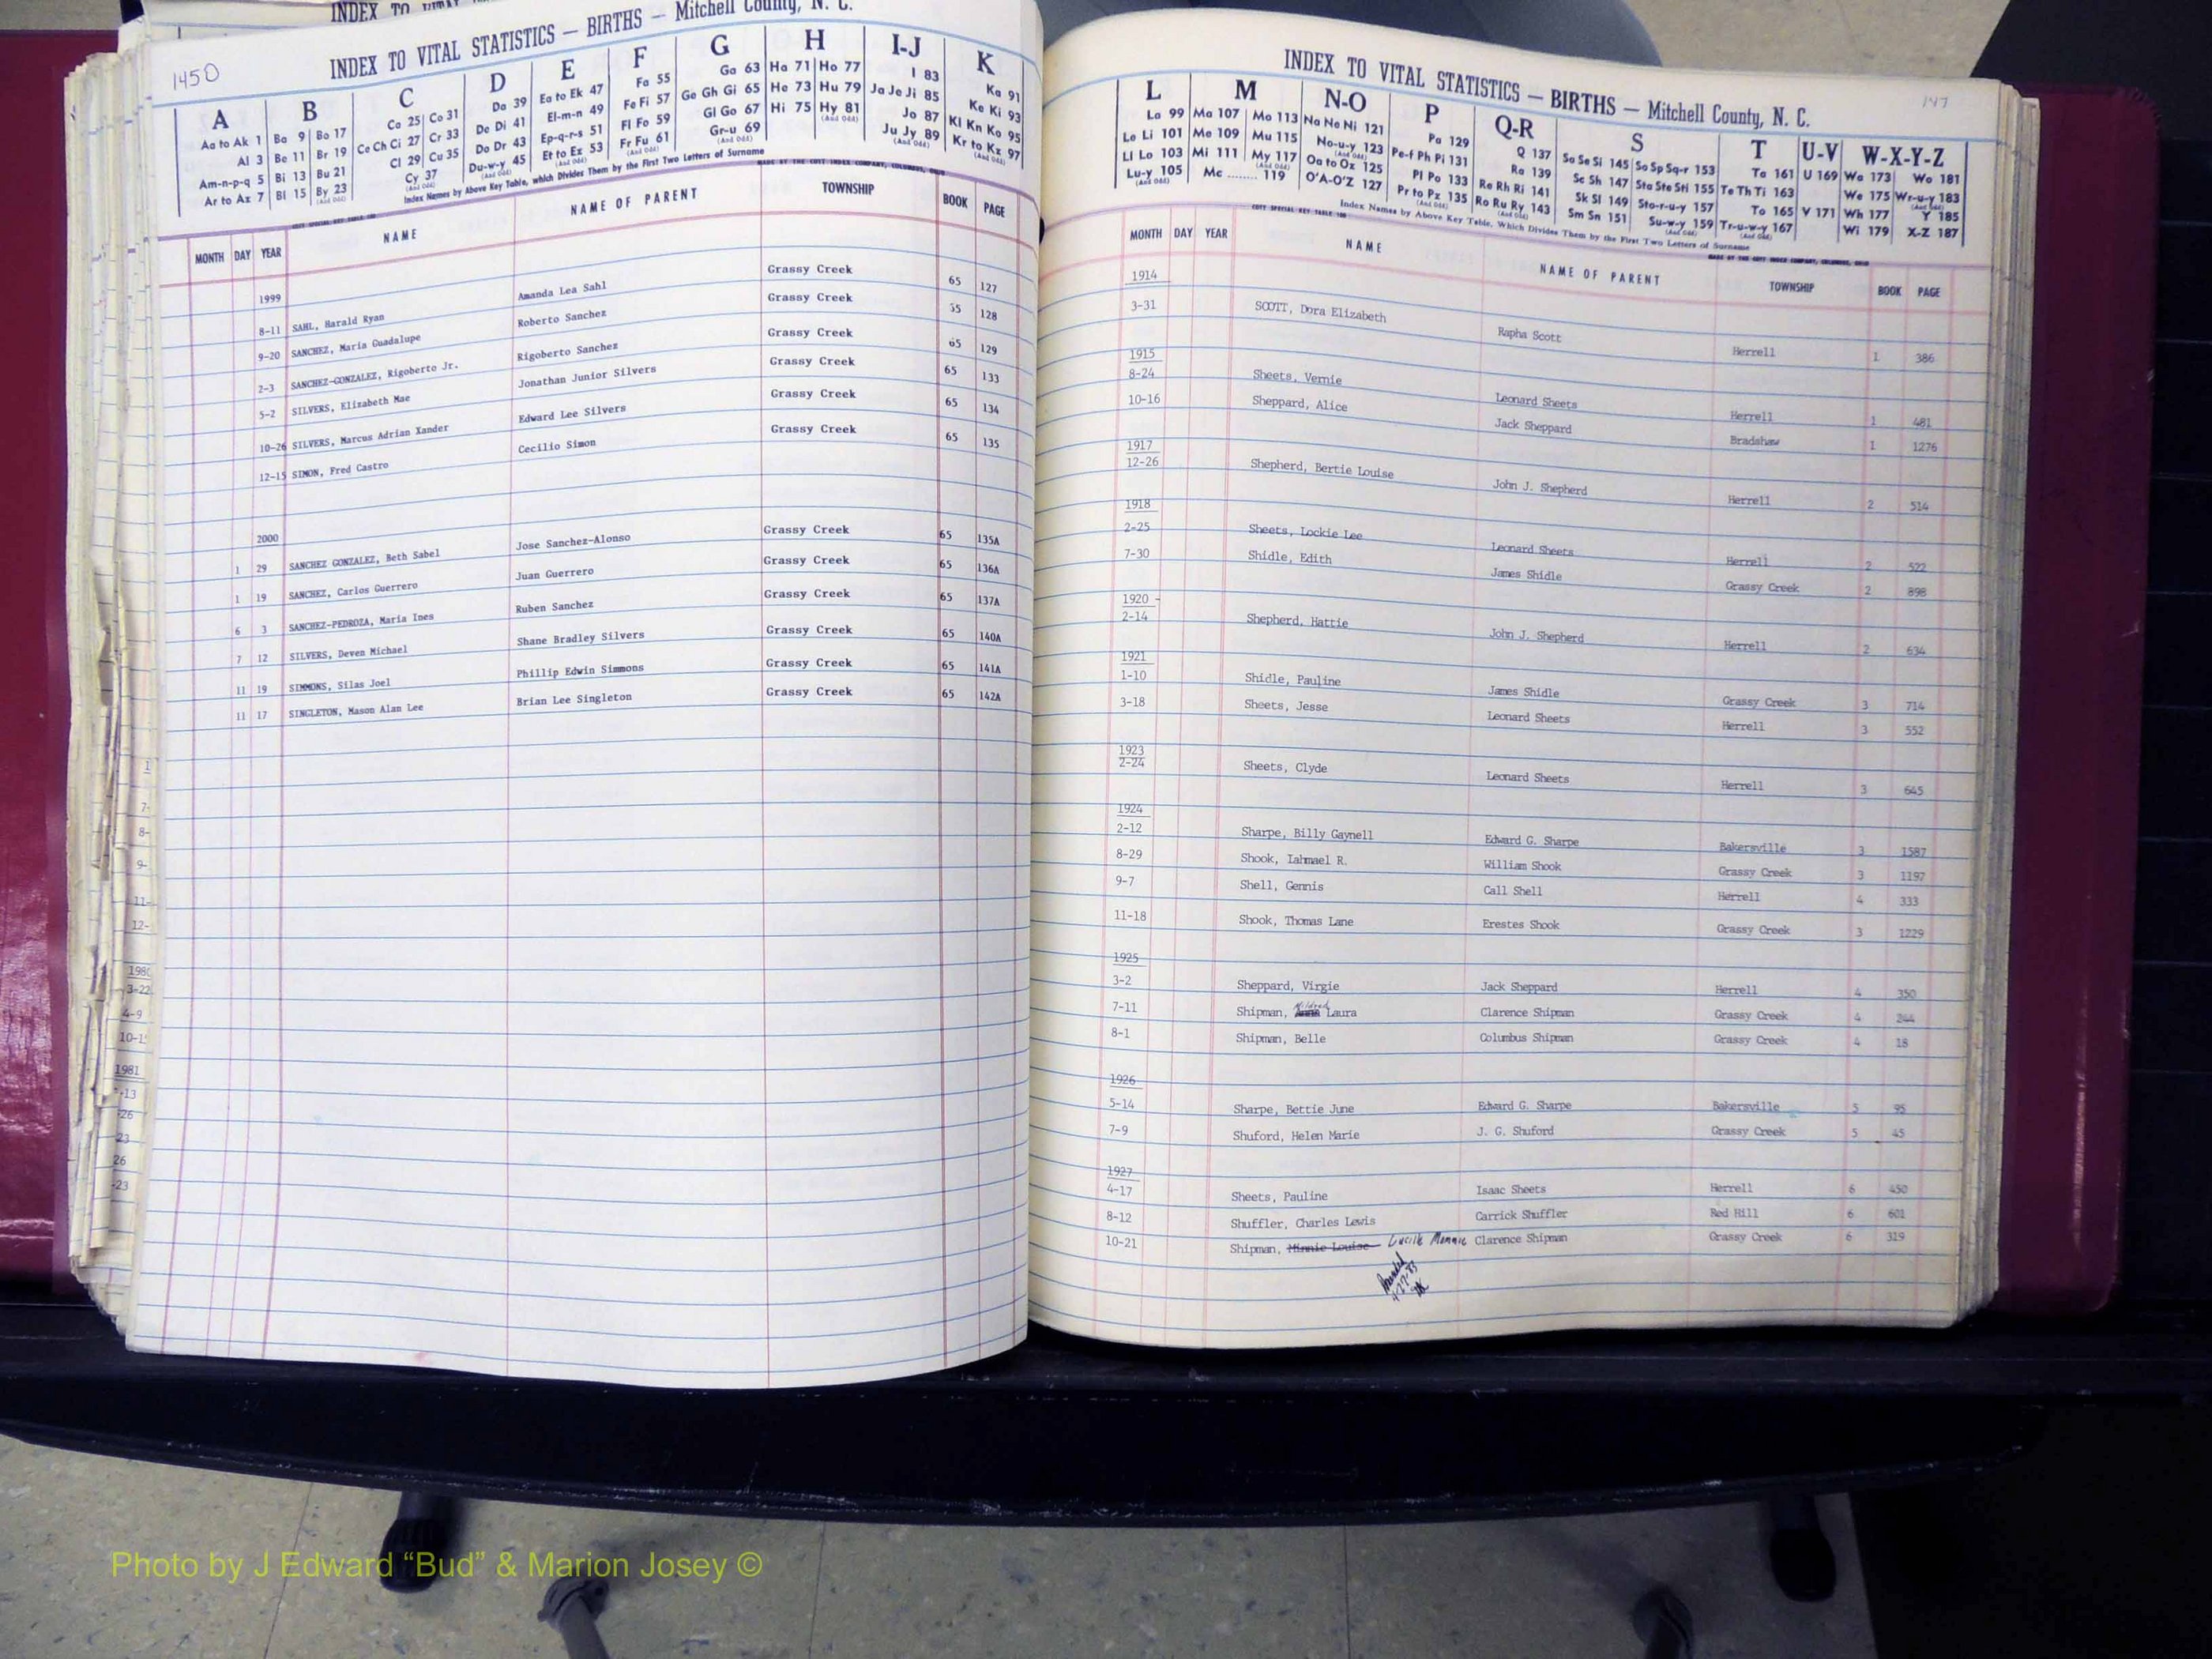 INDEX TO
1450
INDEX TO VITAL STATISTICS — BIRTHS — Mitchell County, N. C.
A B C D E F G H I-J K
Aa to Ak 1
Al 3
Am-n-p-q 5
Ar to Az 7
Ba 9 Bo 17
Be 11 Br 19
Bi 13 Bu 21
Bl 15 By 23
(And Odd)
Ca 25 Co 31
Ce Ch Ci 27 Cr 33
Cl 29 Cu 35
Cy 37
(And Odd)
Da 39
De Di 41
Do Dr 43
Du-w-y 45
(And Odd)
Ea to Ek 47
El-m-n 49
Ep-q-r-s 51
Et to Ez 53
(And Odd)
Fa 55
Fe Fi 57
Fl Fo 59
Fr Fu 61
(And Odd)
Ga 63
Ge Gh Gi 65
Gl Go 67
Gr-u 69
(And Odd)
Ha 71 Ho 77
He 73 Hu 79
Hi 75 Hy 81
(And Odd)
I 83
Ja Je Ji 85
Jo 87
Ju Jy 89
(And Odd)
Ka 91
Ke Ki 93
Kl Kn Ko 95
Kr to Kz 97
(And Odd)
Index Names by Above Key Table, which Divides Them by the First Two Letters of Surname
MADE BY THE COTT INDEX COMPANY, COLUMBUS, OHIO
COTT SPECIAL KEY TABLE 100
MONTH DAY YEAR NAME NAME OF PARENT TOWNSHIP BOOK PAGE
1999
8-11 SAHL, Harald Ryan Amanda Lea Sahl Grassy Creek 65 127
9-20 SANCHEZ, Maria Guadalupe Roberto Sanchez Grassy Creek 65 128
2-3 SANCHEZ-GONZALEZ, Rigoberto Jr. Rigoberto Sanchez Grassy Creek 65 129
5-2 SILVERS, Elizabeth Mae Jonathan Junior Silvers Grassy Creek 65 133
10-26 SILVERS, Marcus Adrian Xander Edward Lee Silvers Grassy Creek 65 134
12-15 SIMON, Fred Castro Cecilio Simon Grassy Creek 65 135
2000
1 29 SANCHEZ GONZALEZ, Beth Sabel Jose Sanchez-Alonso Grassy Creek 65 135A
1 19 SANCHEZ, Carlos Guerrero Juan Guerrero Grassy Creek 65 136A
6 3 SANCHEZ-PEDROZA, Maria Ines Ruben Sanchez Grassy Creek 65 137A
7 12 SILVERS, Deven Michael Shane Bradley Silvers Grassy Creek 65 140A
11 19 SIMMONS, Silas Joel Phillip Edwin Simmons Grassy Creek 65 141A
11 17 SINGLETON, Mason Alan Lee Brian Lee Singleton Grassy Creek 65 142A
1
7-
8-
9-
11-
12-
1980
3-22
4-9
10-1
1981
-13
-26
-23
26
-23
147
INDEX TO VITAL STATISTICS — BIRTHS — Mitchell County, N. C.
L M N-O P Q-R S T U-V W-X-Y-Z
La 99
Le Li 101
Ll Lo 103
Lu-y 105
(And Odd)
Ma 107 Mo 113
Me 109 Mu 115
Mi 111 My 117
(And Odd)
Mc ........ 119
Na Ne Ni 121
No-u-y 123
(And Odd)
Oa to Oz 125
O'A-O'Z 127
Pa 129
Pe-f Ph Pi 131
Pl Po 133
Pr to Pz 135
(And Odd)
Q 137
Ra 139
Re Rh Ri 141
Ro Ru Ry 143
(And Odd)
Sa Se Si 145 So Sp Sq-r 153
Sc Sh 147 Sta Ste Sti 155
Sk Sl 149 Sto-r-u-y 157
Sm Sn 151 Su-w-y 159
(And Odd)
Ta 161
Te Th Ti 163
To 165
Tr-u-w-y 167
(And Odd)
U 169
V 171
Wa 173 Wo 181
We 175 Wr-u-y 183
(And Odd)
Wh 177 Y 185
Wi 179 X-Z 187
COTT SPECIAL KEY TABLE 100
Index Names by Above Key Table, Which Divides Them by the First Two Letters of Surname
MADE BY THE COTT INDEX COMPANY, COLUMBUS, OHIO
MONTH DAY YEAR NAME NAME OF PARENT TOWNSHIP BOOK PAGE
1914
3-31 SCOTT, Dora Elizabeth Rapha Scott Herrell 1 386
1915
8-24 Sheets, Vernie Leonard Sheets Herrell 1 481
10-16 Sheppard, Alice Jack Sheppard Bradshaw 1 1276
1917
12-26 Shepherd, Bertie Louise John J. Shepherd Herrell 2 514
1918
2-25 Sheets, Lockie Lee Leonard Sheets Herrell 2 522
7-30 Shidle, Edith James Shidle Grassy Creek 2 898
1920 -
2-14 Shepherd, Hattie John J. Shepherd Herrell 2 634
1921
1-10 Shidle, Pauline James Shidle Grassy Creek 3 714
3-18 Sheets, Jesse Leonard Sheets Herrell 3 552
1923
2-24 Sheets, Clyde Leonard Sheets Herrell 3 645
1924
2-12 Sharpe, Billy Gaynell Edward G. Sharpe Bakersville 3 1587
8-29 Shook, Iahmael R. William Shook Grassy Creek 3 1197
9-7 Shell, Gennis Call Shell Herrell 4 333
11-18 Shook, Thomas Lane Erestes Shook Grassy Creek 3 1229
1925
3-2 Sheppard, Virgie Jack Sheppard Herrell 4 350
7-11 Shipman, Mildred Laura Clarence Shipman Grassy Creek 4 244
8-1 Shipman, Belle Columbus Shipman Grassy Creek 4 18
1926
5-14 Sharpe, Bettie June Edward G. Sharpe Bakersville 5 95
7-9 Shuford, Helen Marie J. G. Shuford Grassy Creek 5 45
1927
4-17 Sheets, Pauline Isaac Sheets Herrell 6 450
8-12 Shuffler, Charles Lewis Carrick Shuffler Red Hill 6 601
10-21 Shipman, Minnie Louise Lucile Monnie Clarence Shipman Grassy Creek 6 319
4-27-83
Photo by J Edward “Bud” & Marion Josey ©